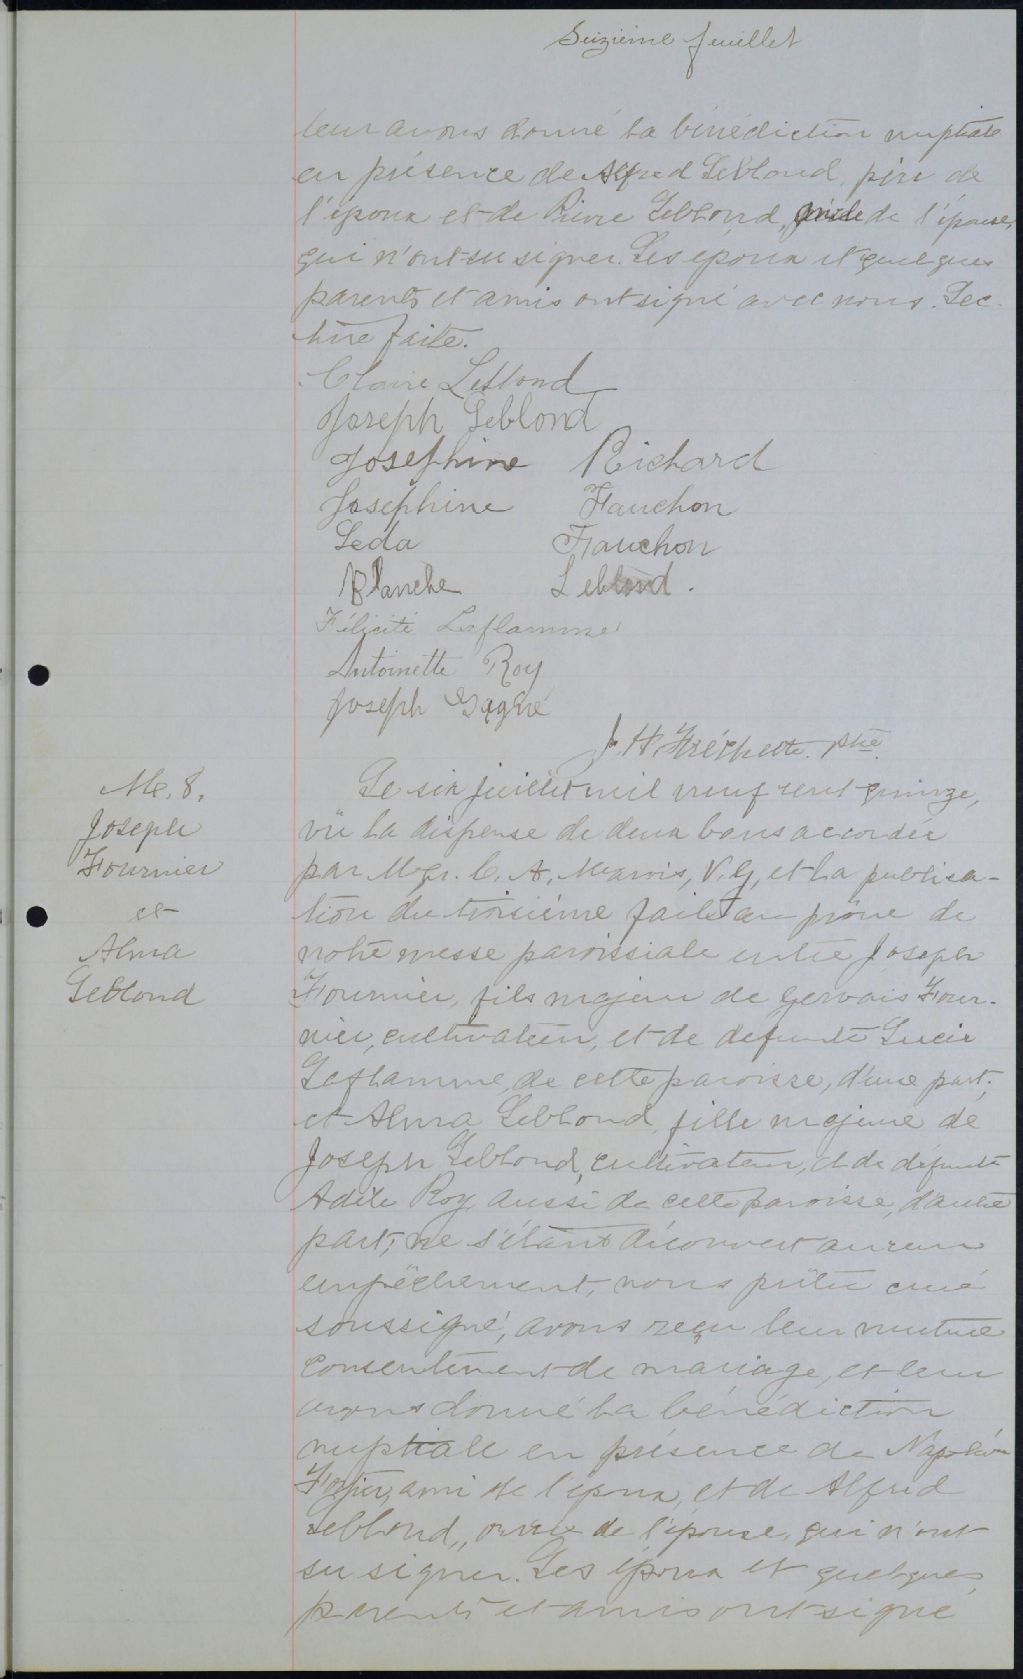 Seizième feuillet
leur avons donné la bénédiction nuptiale
en présence de Alfred Leblond, père de
l'époux et de Pierre Leblond, de l'épouse,
qui n'ont su signer. Les époux et quelques
parents et amis ont signé avec nous. Lec-
ture faite.
Claire Leblond
Joseph Leblond
Josephine Richard
Josephine Fauchon
Leda Fauchon
Blanche Leblond.
Félicité Laflamme
Antoinette Roy
Joseph Gagné
J. H. Fréchette. ptre.
Me. 8.
Joseph
Fournier
et
Alma
Leblond
Le six juillet mil neuf cent quinze,
vu la dispense de deux bans accordée
par Mgr. C. A. Marois, V. G, et la publica-
tion du troisième faite au prône de
notre messe paroissiale entre Joseph
Fournier, fils majeur de Gervais Four-
nier, cultivateur, et de defunte Lucie
Laflamme, de cette paroisse, d'une part;
et Alma Leblond, fille majeure de
Joseph Leblond, cultivateur, et de défunte
Adèle Roy aussi de cette paroisse, d'autre
part; ne s'étant découvert aucun
empêchement, nous prêtre curé
soussigné, avons reçu leur mutuel
consentement de mariage, et leur
avons donné la bénédiction
nuptiale en présence de Napoléon
ami de l'époux, et de Alfred
Leblond, oncle de l'épouse, qui n'ont
su signer. Les époux et quelques
parents et amis ont signé